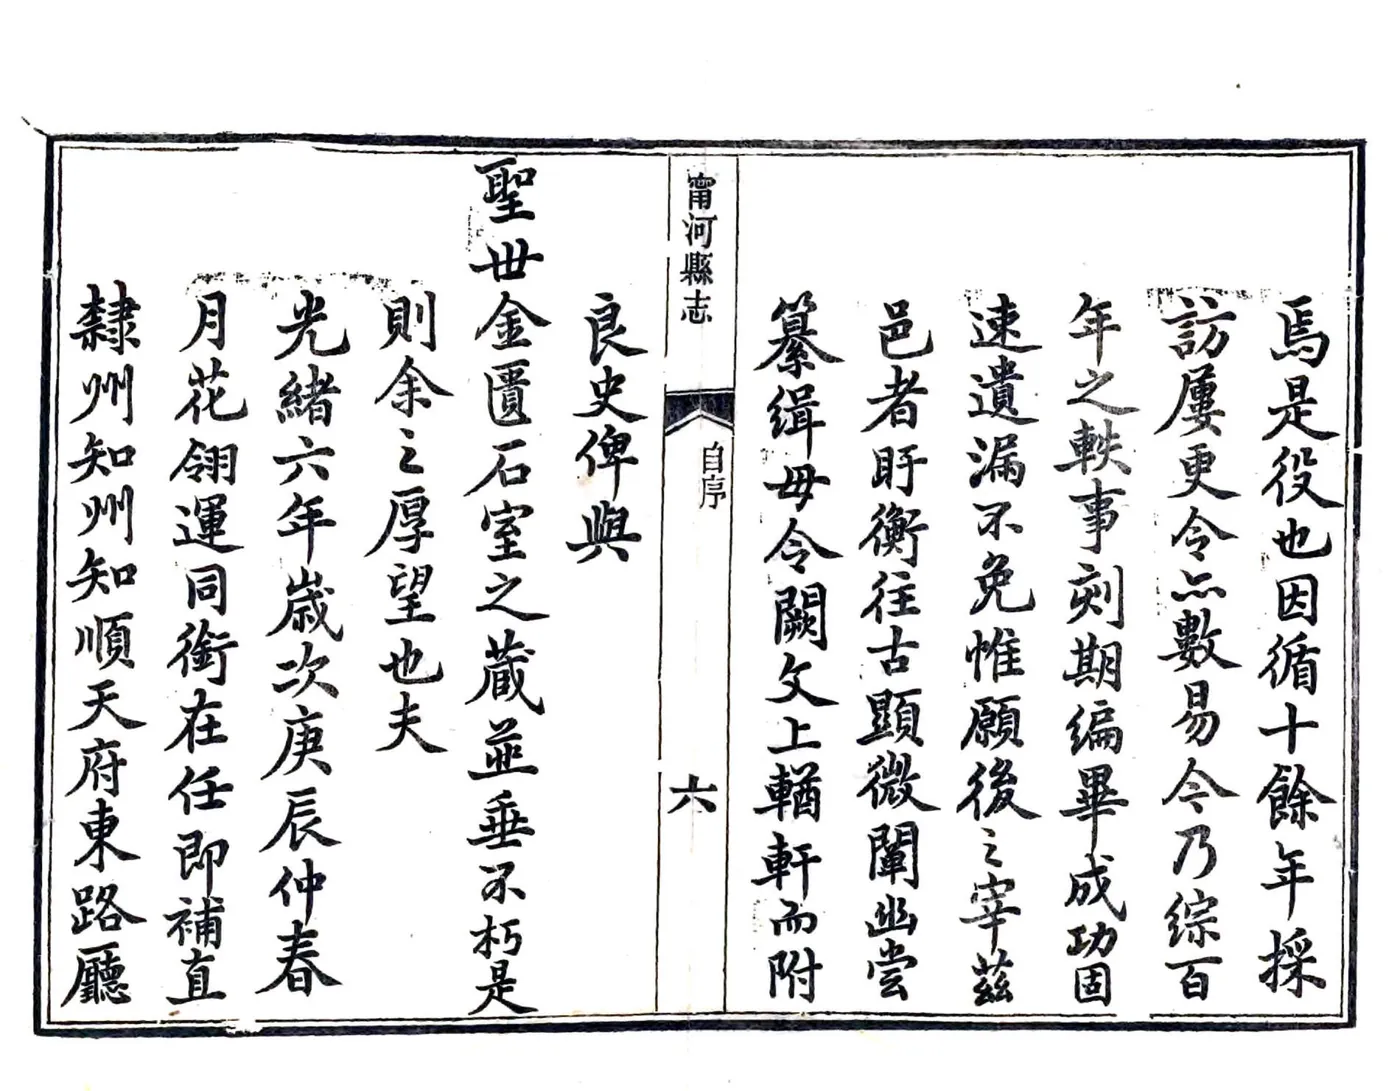 焉是役也因循十餘年採
訪屢更令尹數易今乃綜百
年之軼事刻期編畢成功固
速遺漏不免惟願後之宰茲
邑者盱衡往古顯微闡幽嘗
纂緝毋令闕文上輶軒而附
甯河縣志
自序
六
良史俾與
聖世金匱石室之藏並垂不朽是
則余之厚望也夫
光緒六年歲次庚辰仲春
月花翎運同銜在任即補直
隸州知州知順天府東路廳